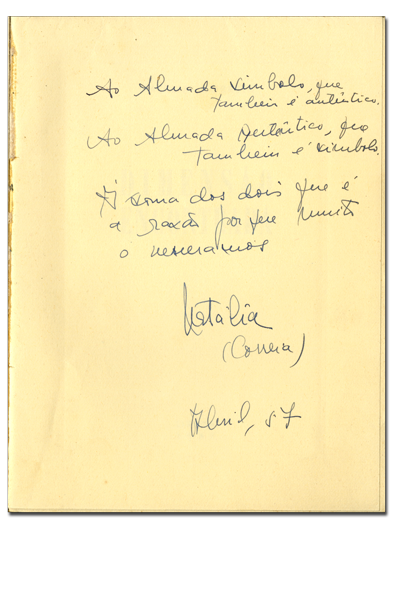 Ao Almada símbolo, que
também é autêntico.
Ao Almada Autêntico, que
também é símbolo.
À soma dos dois que é
a razão por que muito
o veneramos
Natália
(Correia)
Abril, 57